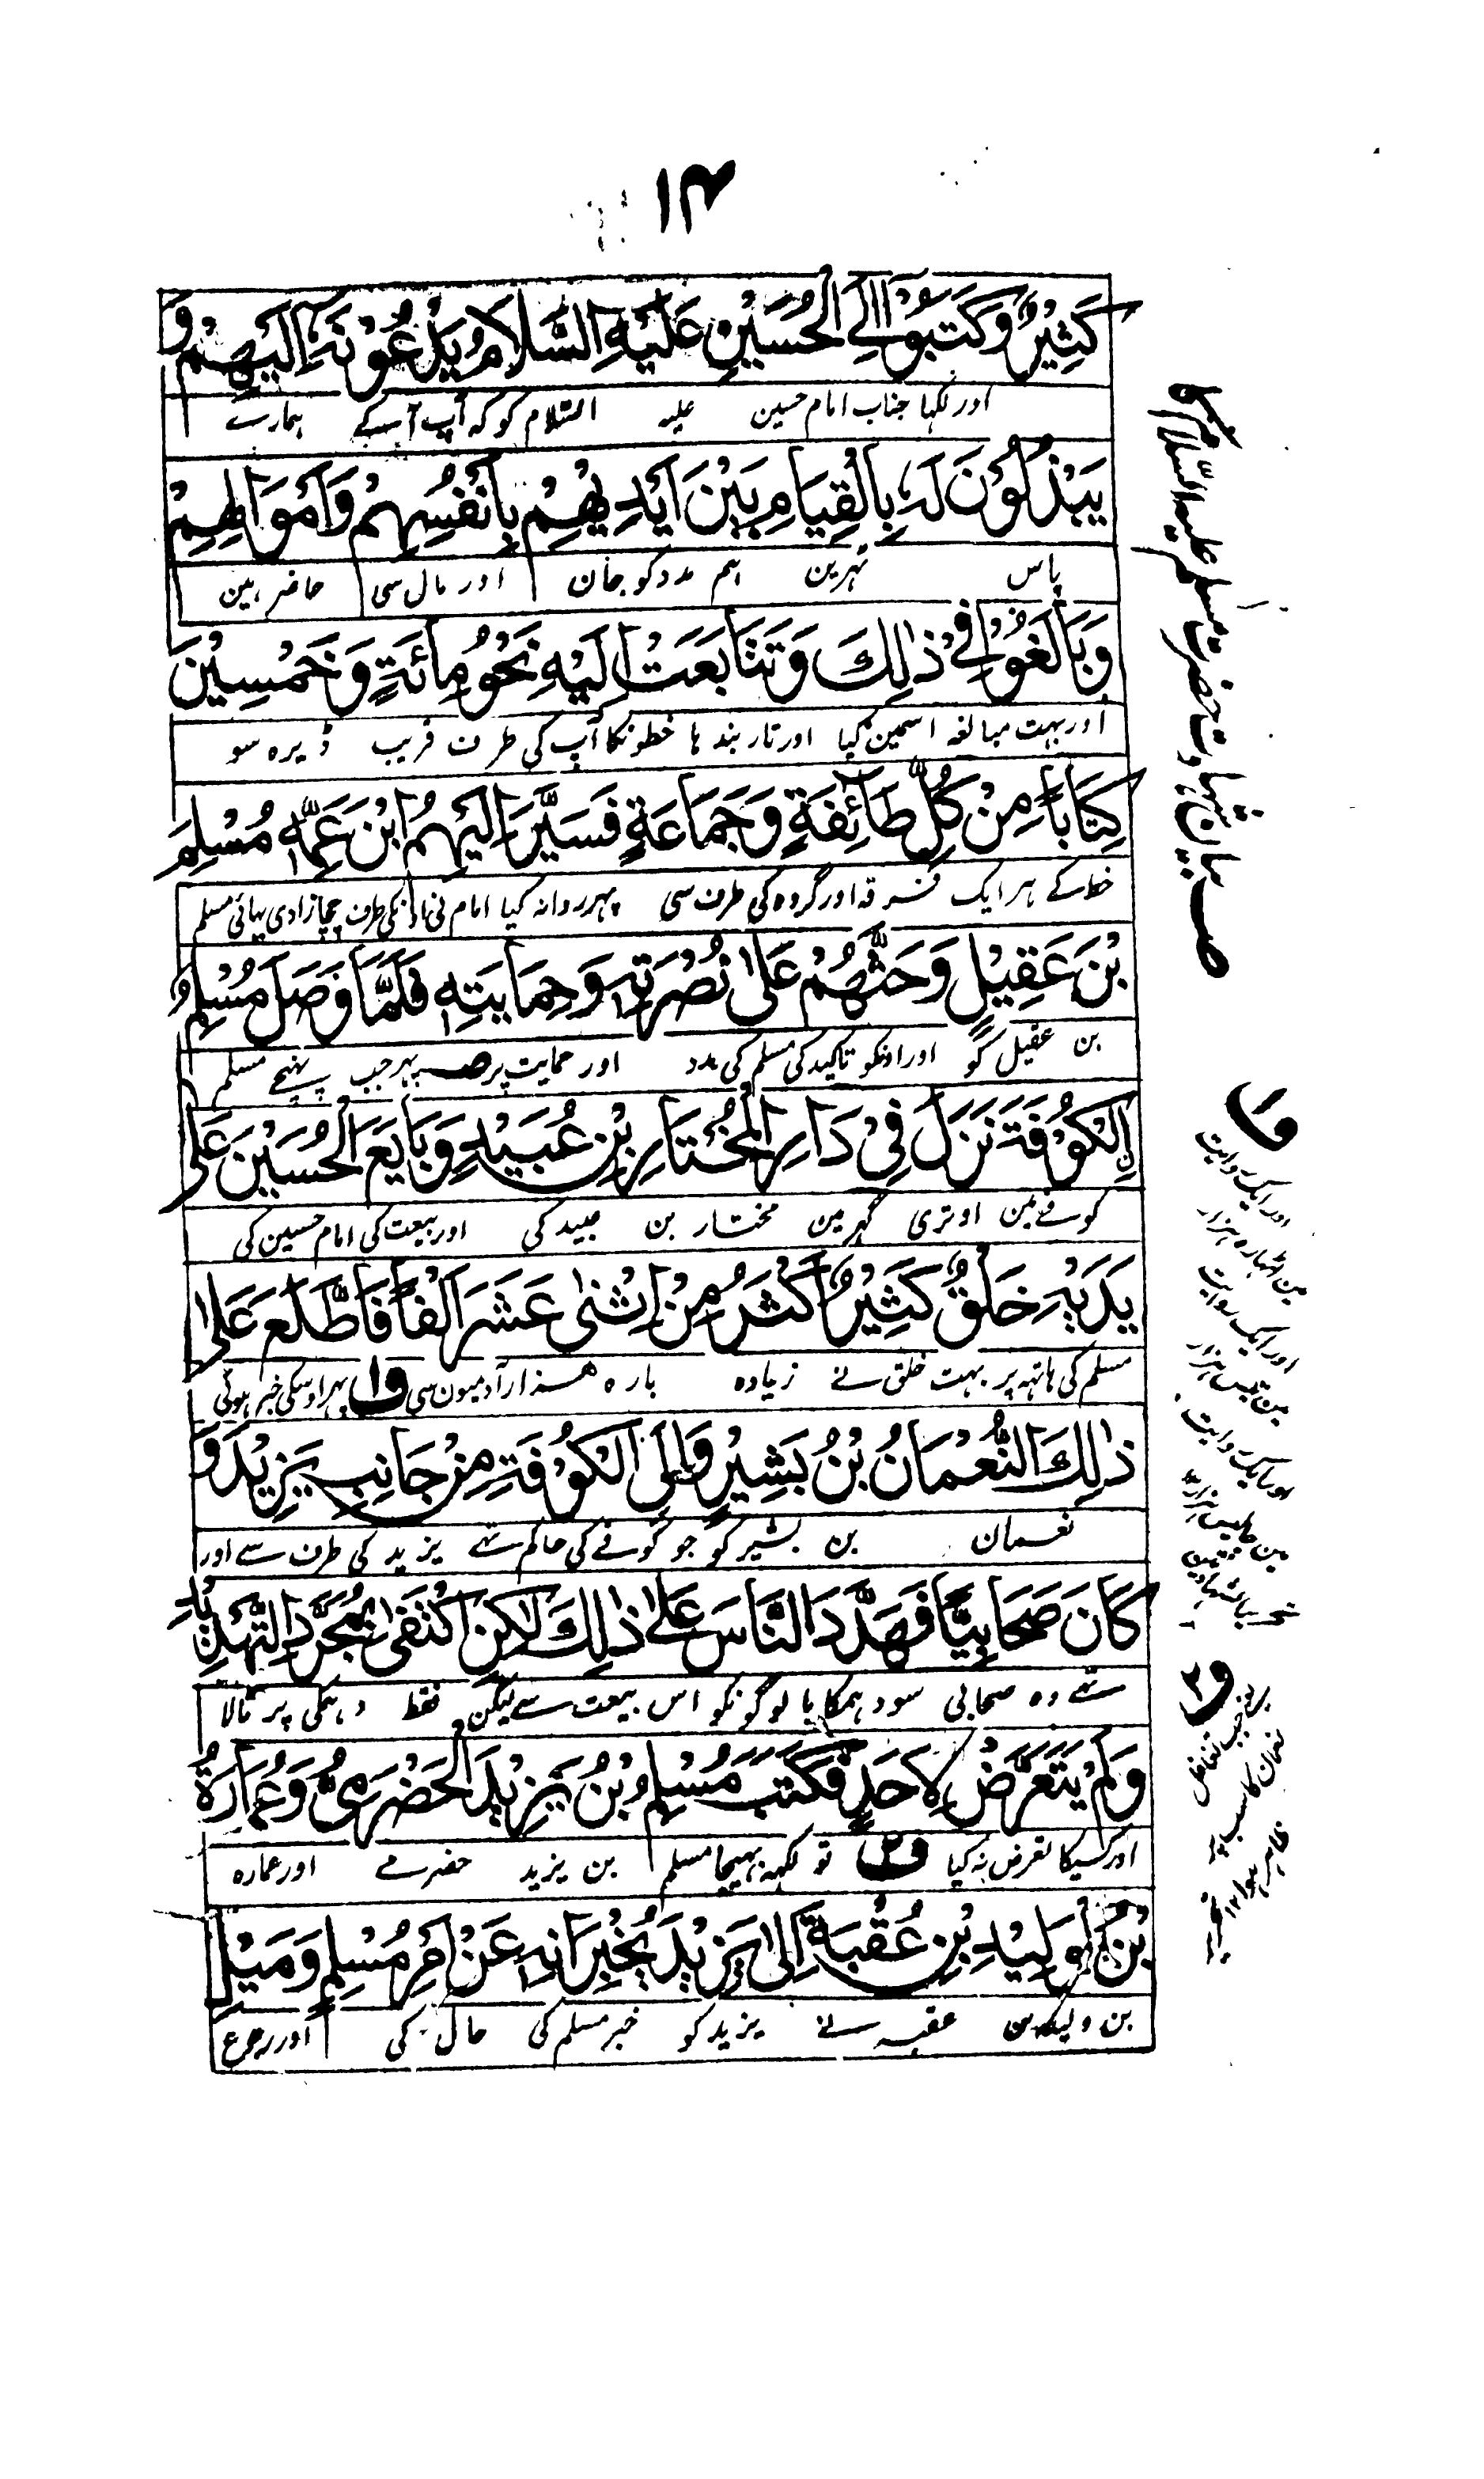 ۱۴
كَثِيْرٌ وَكَتَبُوْا اِلَى الْحُسَيْنِ عَلَيْهِ السَّلَامُ يَدْعُوْنَهٗ اِلَيْهِمْ وَ
اور لکہا جناب امام حسین علیہ السّلام کو کہ آپ آیئے ہمارے
يَبْذُلُوْنَ لَهٗ بِالْقِيَامِ بَيْنَ اَيْدِيْهِمْ بِاَنْفُسِهِمْ وَاَمْوَالِهِمْ
پاس ہم مدد کو جان اور مال سی حاضر ہین
وَبَالَغُوْا فِيْ ذٰلِكَ وَتَتَابَعَتْ اِلَيْهِ نَحْوُ مِائَةٍ وَخَمْسِيْنَ
اور بہت مبالغہ اسمین کیا اور تار بندہا خطونکا آپ کی طرف قریب ڈیرہ سو
كِتَابًا مِنْ كُلِّ طَائِفَةٍ وَجَمَاعَةٍ فَسَيَّرَ اِلَيْهِمُ ابْنَ عَمِّهٖ مُسْلِمَ
خط کے ہر ایک فرقہ اور گروہ کی طرف سی پہر روانہ کیا امام نی اونکی طرف چچازادی بہائی مسلم
بْنَ عَقِيْلٍ وَحَثَّهُمْ عَلٰى نُصْرَتِهٖ وَحِمَايَتِهٖ فَلَمَّا وَصَلَ مُسْلِمٌ
بن عقیل کو اور اونکو تاکید کی مسلم کی مدد اور حمایت پر صـ پہر جب پہنچے مسلم
اِلَى الْكُوْفَةِ نَزَلَ فِيْ دَارِ الْمُخْتَارِ بْنِ عُبَيْدٍ وَبَايَعَ الْحُسَيْنَ عَلٰى
کوفے مین اوتری گہر مین مختار بن عبید کی اور بیعت کی امام حسین کی
يَدَيْهِ خَلْقٌ كَثِيْرٌ اَكْثَرُ مِنْ اِثْنٰى عَشَرَ اَلْفًا فَاطَّلَعَ عَلٰى
مسلم کی ہاتہہ پر بہت خلق نے زیادہ بارہ ہزار آدمیون سی ف۱ پہر اوسکی خبر ہوئی
ذٰلِكَ النُّعْمَانُ بْنُ بَشِيْرٍ وَالِى الْكُوْفَةِ مِنْ جَانِبِ يَزِيْدَ وَ
نعمان بن بشیر کو جو کوفے کی حاکم تہے یزید کی طرف سے اور
كَانَ صَحَابِيًّا فَهَدَّدَ النَّاسَ عَلٰى ذٰلِكَ لٰكِنِ اكْتَفٰى بِمُجَرَّدِ التَّهْدِيْدِ
تہے وہ صحابی سو دہمکایا لوگونکو اس بیعت سے لیکن فقط دہمکی پر ٹالا
وَلَمْ يَتَعَرَّضْ لِاَحَدٍ فَكَتَبَ مُسْلِمُ بْنُ يَزِيْدَ الْحَضْرَمِيُّ وَعُمَارَةُ
اور کسیکا تعرض نہ کیا ف۲ تو لکہہ بہیجا مسلم بن یزید حضرمے اور عمارہ
بْنُ الْوَلِيْدِ بْنِ عُقْبَةَ اِلٰى يَزِيْدَ يُخْبِرَانِهٖ عَنْ اَمْرِ مُسْلِمٍ وَمَيْلِ
بن ولید بن عقبہ نے یزید کو خبر مسلم کی حال کی اور رجوع
صـ بیان شہادت حضرت مسلم علیہ السّلام کا
ف۱
اور ایک روایت
مین اٹہارہ ہزار
اور ایک روایت
مین تیس ہزار
اور ایک روایت
مین چالیس ہزار
تحریر الشہادتین
ف۲